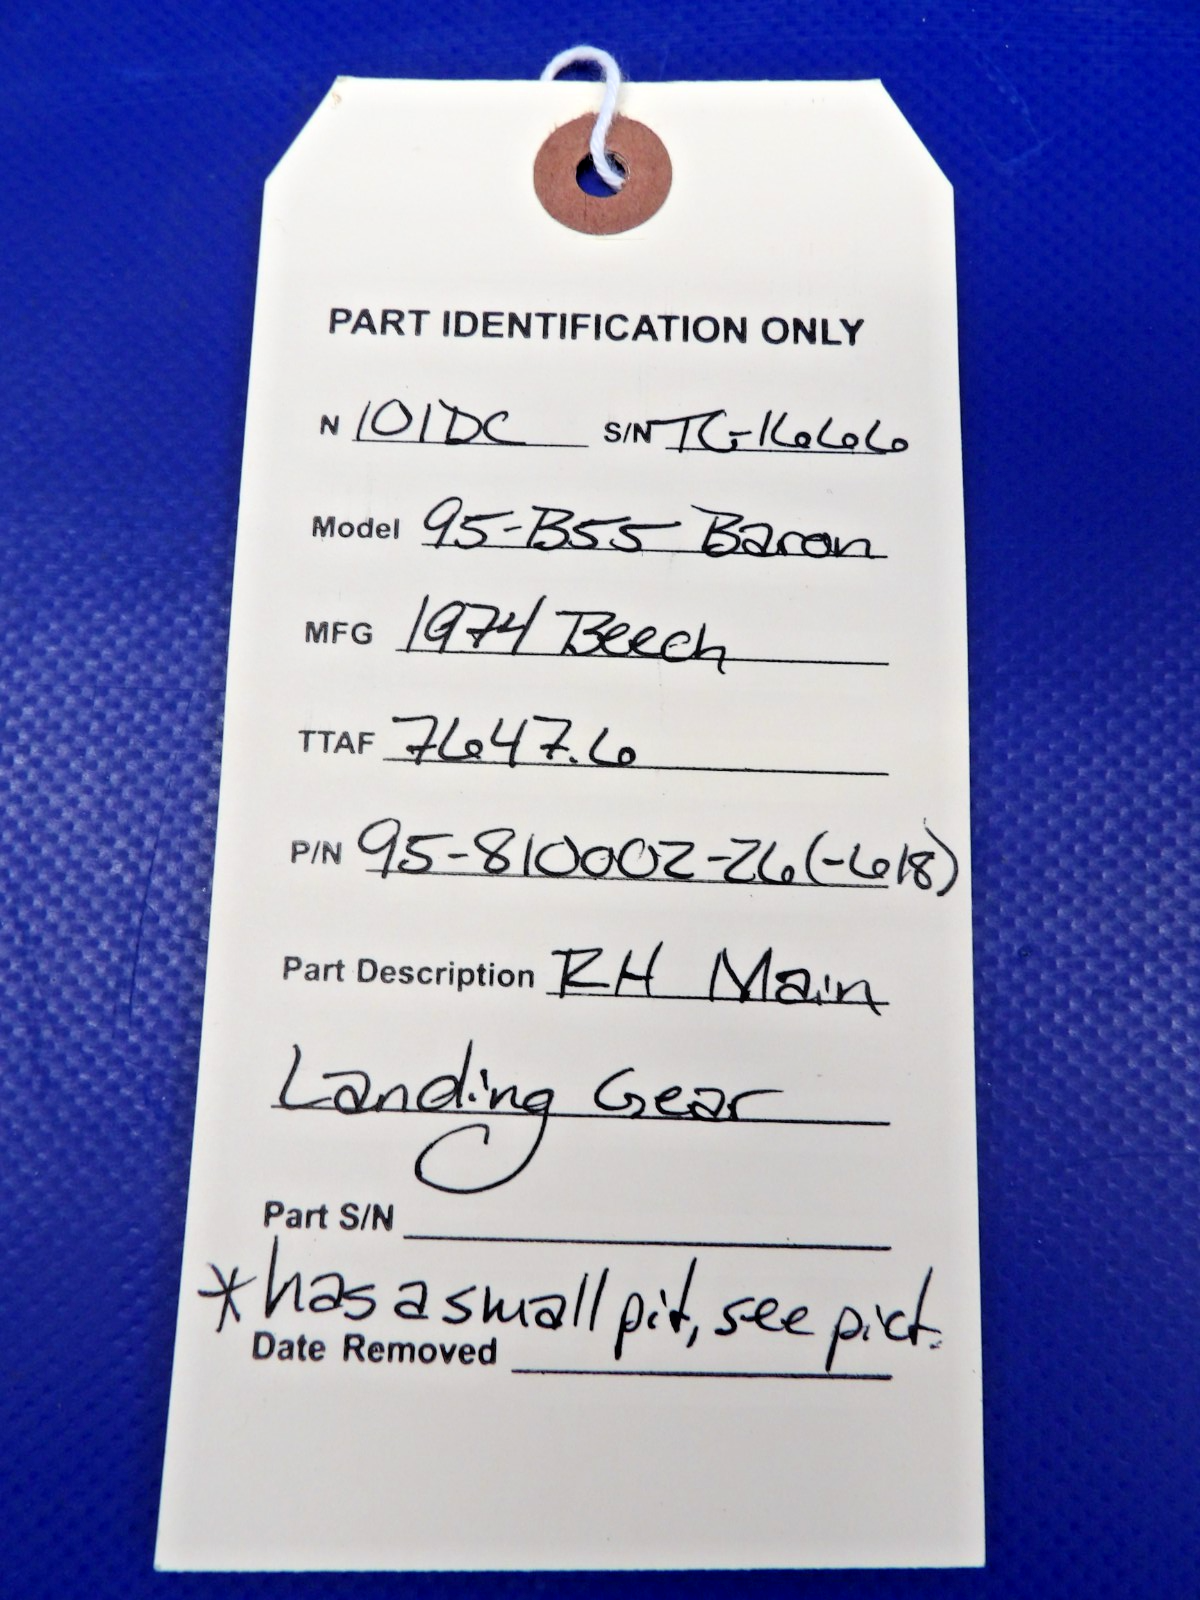 PART IDENTIFICATION ONLY
N 101DC S/N TC-1666
Model 95-B55 Baron
MFG 1974 Beech
TTAF 7647.6
P/N 95-810002-26(-618)
Part Description RH Main
Landing Gear
Part S/N
*has a small pit, see pict.
Date Removed